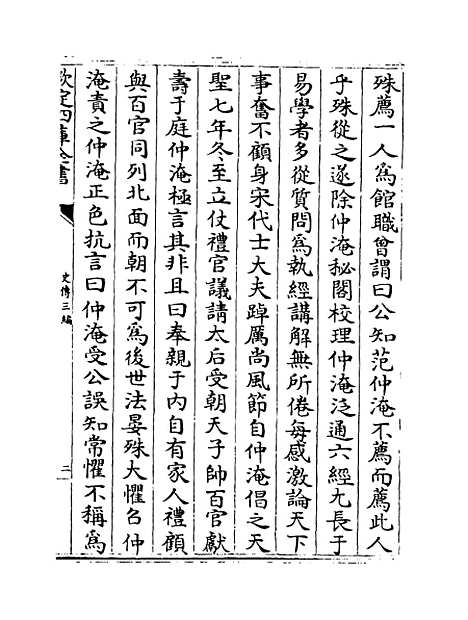 殊薦一人爲館職曾謂曰公知范仲淹不薦而薦此人
乎殊從之遂除仲淹秘閣校理仲淹泛通六經尤長于
易學者多從質問爲執經講解無所倦每感激論天下
事奮不顧身宋代士大夫踔厲尚風節自仲淹倡之天
聖七年冬至立仗禮官議請太后受朝天子帥百官獻
壽于庭仲淹極言其非且曰奉親于内自有家人禮顧
與百官同列北面而朝不可爲後世法晏殊大懼召仲
淹責之仲淹正色抗言曰仲淹受公誤知常懼不稱爲
欽定四庫全書
史傳三編
二